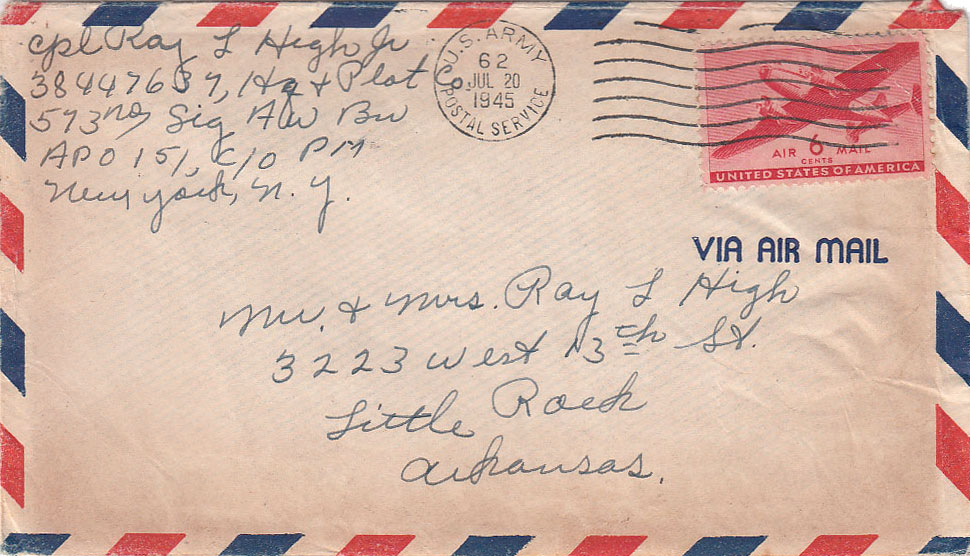 Cpl Ray L High Jr
38447637, Hq & Plot Co
573rd Sig AW Bn
APO 151, C/O PM
New York, N.Y.
U.S. ARMY
62
JUL 20
1945
POSTAL SERVICE
AIR 6 MAIL
CENTS
UNITED STATES OF AMERICA
VIA AIR MAIL
Mr. & Mrs. Ray L High
3223 West 13th St.
Little Rock
Arkansas.